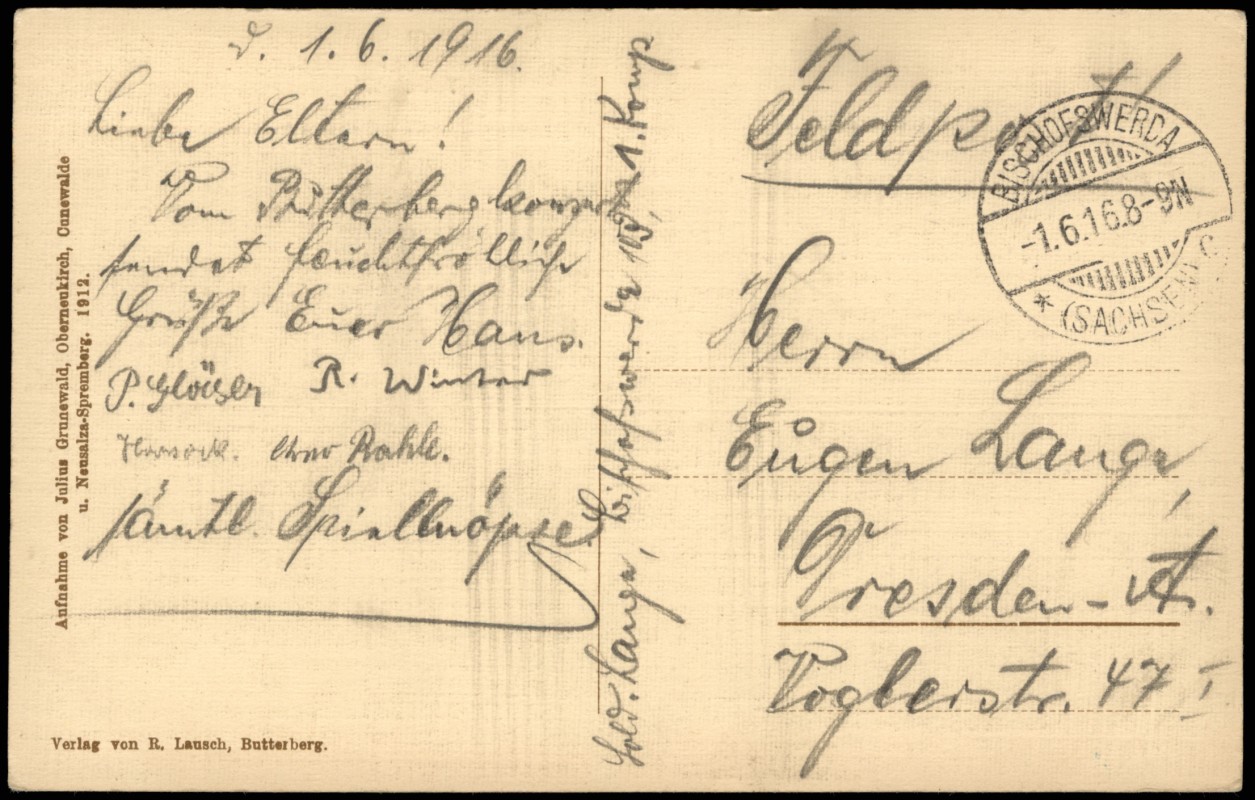 d. 1. 6. 1916.
Liebe Eltern!
Vom Butterbergkonzert
sendet feuchtfröhliche
Grüße Euer Hans.
P. Gläser R. Winter
sämtl. Spiellnöpse.
Sold. Lange, Bischofswerda 103, 1. Komp
Feldpost!
Herrn
Eugen Lange,
Dresden-A.
Voglerstr. 47 I
BISCHOFSWERDA
-1.6.16.8-9N
* (SACHSEN) C
Aufnahme von Julius Grunewald, Oberneukirch, Cunewalde
u. Neusalza-Spremberg. 1912.
Verlag von R. Lausch, Butterberg.